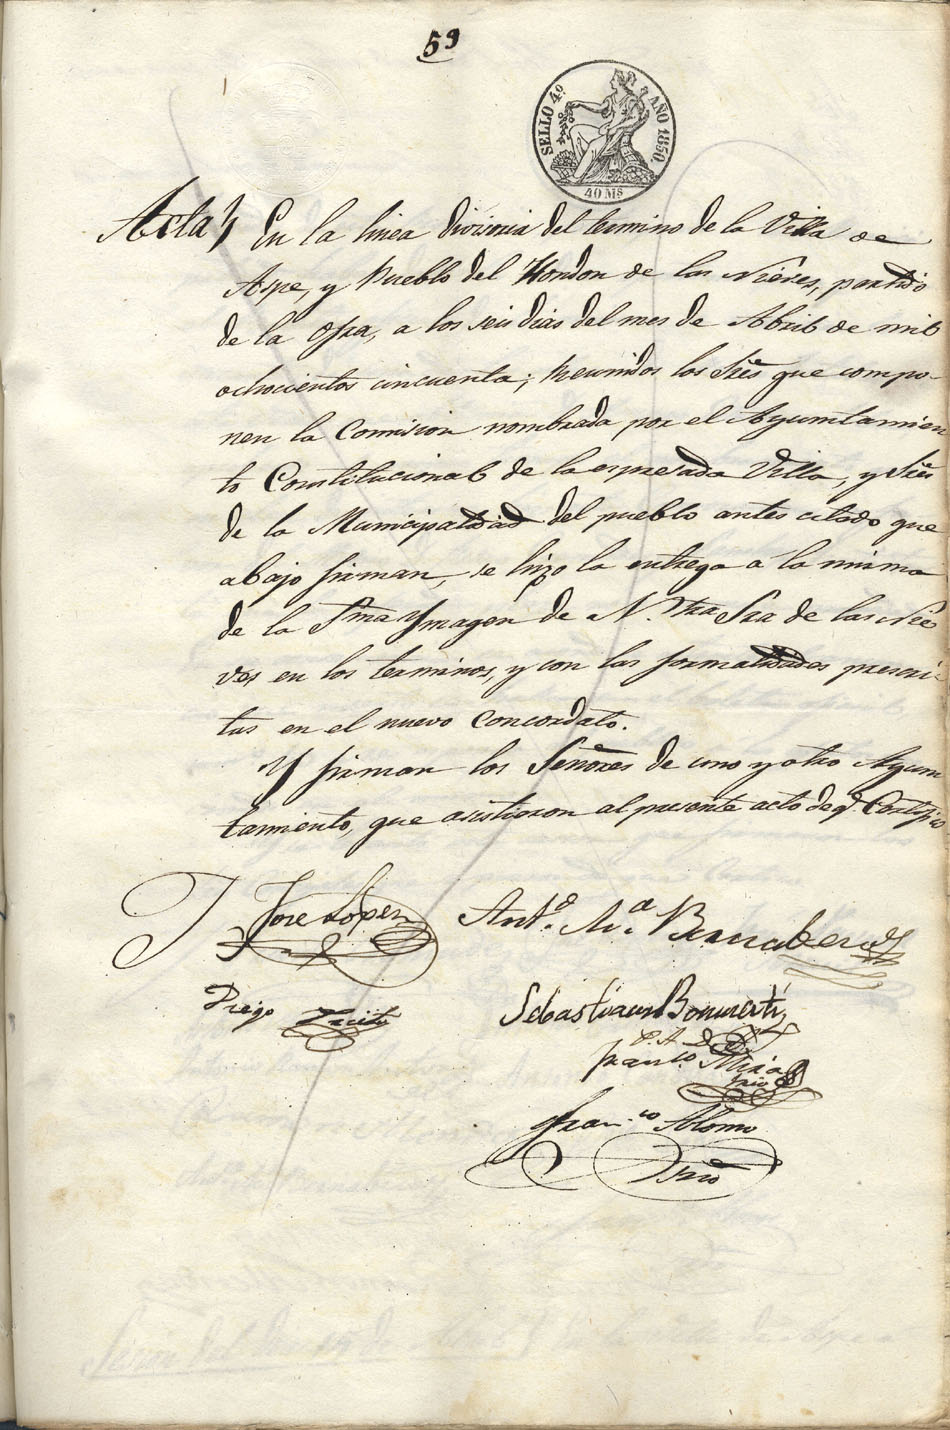 59
SELLO 4º AÑO 1850.
40 Ms
Acta En la linea divisoria del termino de la Villa de
Aspe, y Pueblo del Hondon de las Nieves, partido
de la Ofra, a los seis dias del mes de Abril de mil
ochocientos cincuenta; Reunidos los Sres que compo-
nen la Comision nombrada por el Ayuntamien
to Constitucional de la espresada Villa, y Sres
de la Municipalidad del pueblo antes citado que
abajo firman, se hizo la entrega á la misma
de la Sma Ymagen de N.tra Sra de las Nie
ves en los terminos, y con las formalidades prescri-
tas en el nuevo Concordato.
Y firman los Señores de uno y otro Ayun
tamiento, que asistieron al presente acto de q.e Certifico
Jose Lopez Ant.o M.a Bernabeu
Diego Sebastian Bonmati
P. A. D.
Fran.co Mira
Srio
Fran.co Alonso
Srio